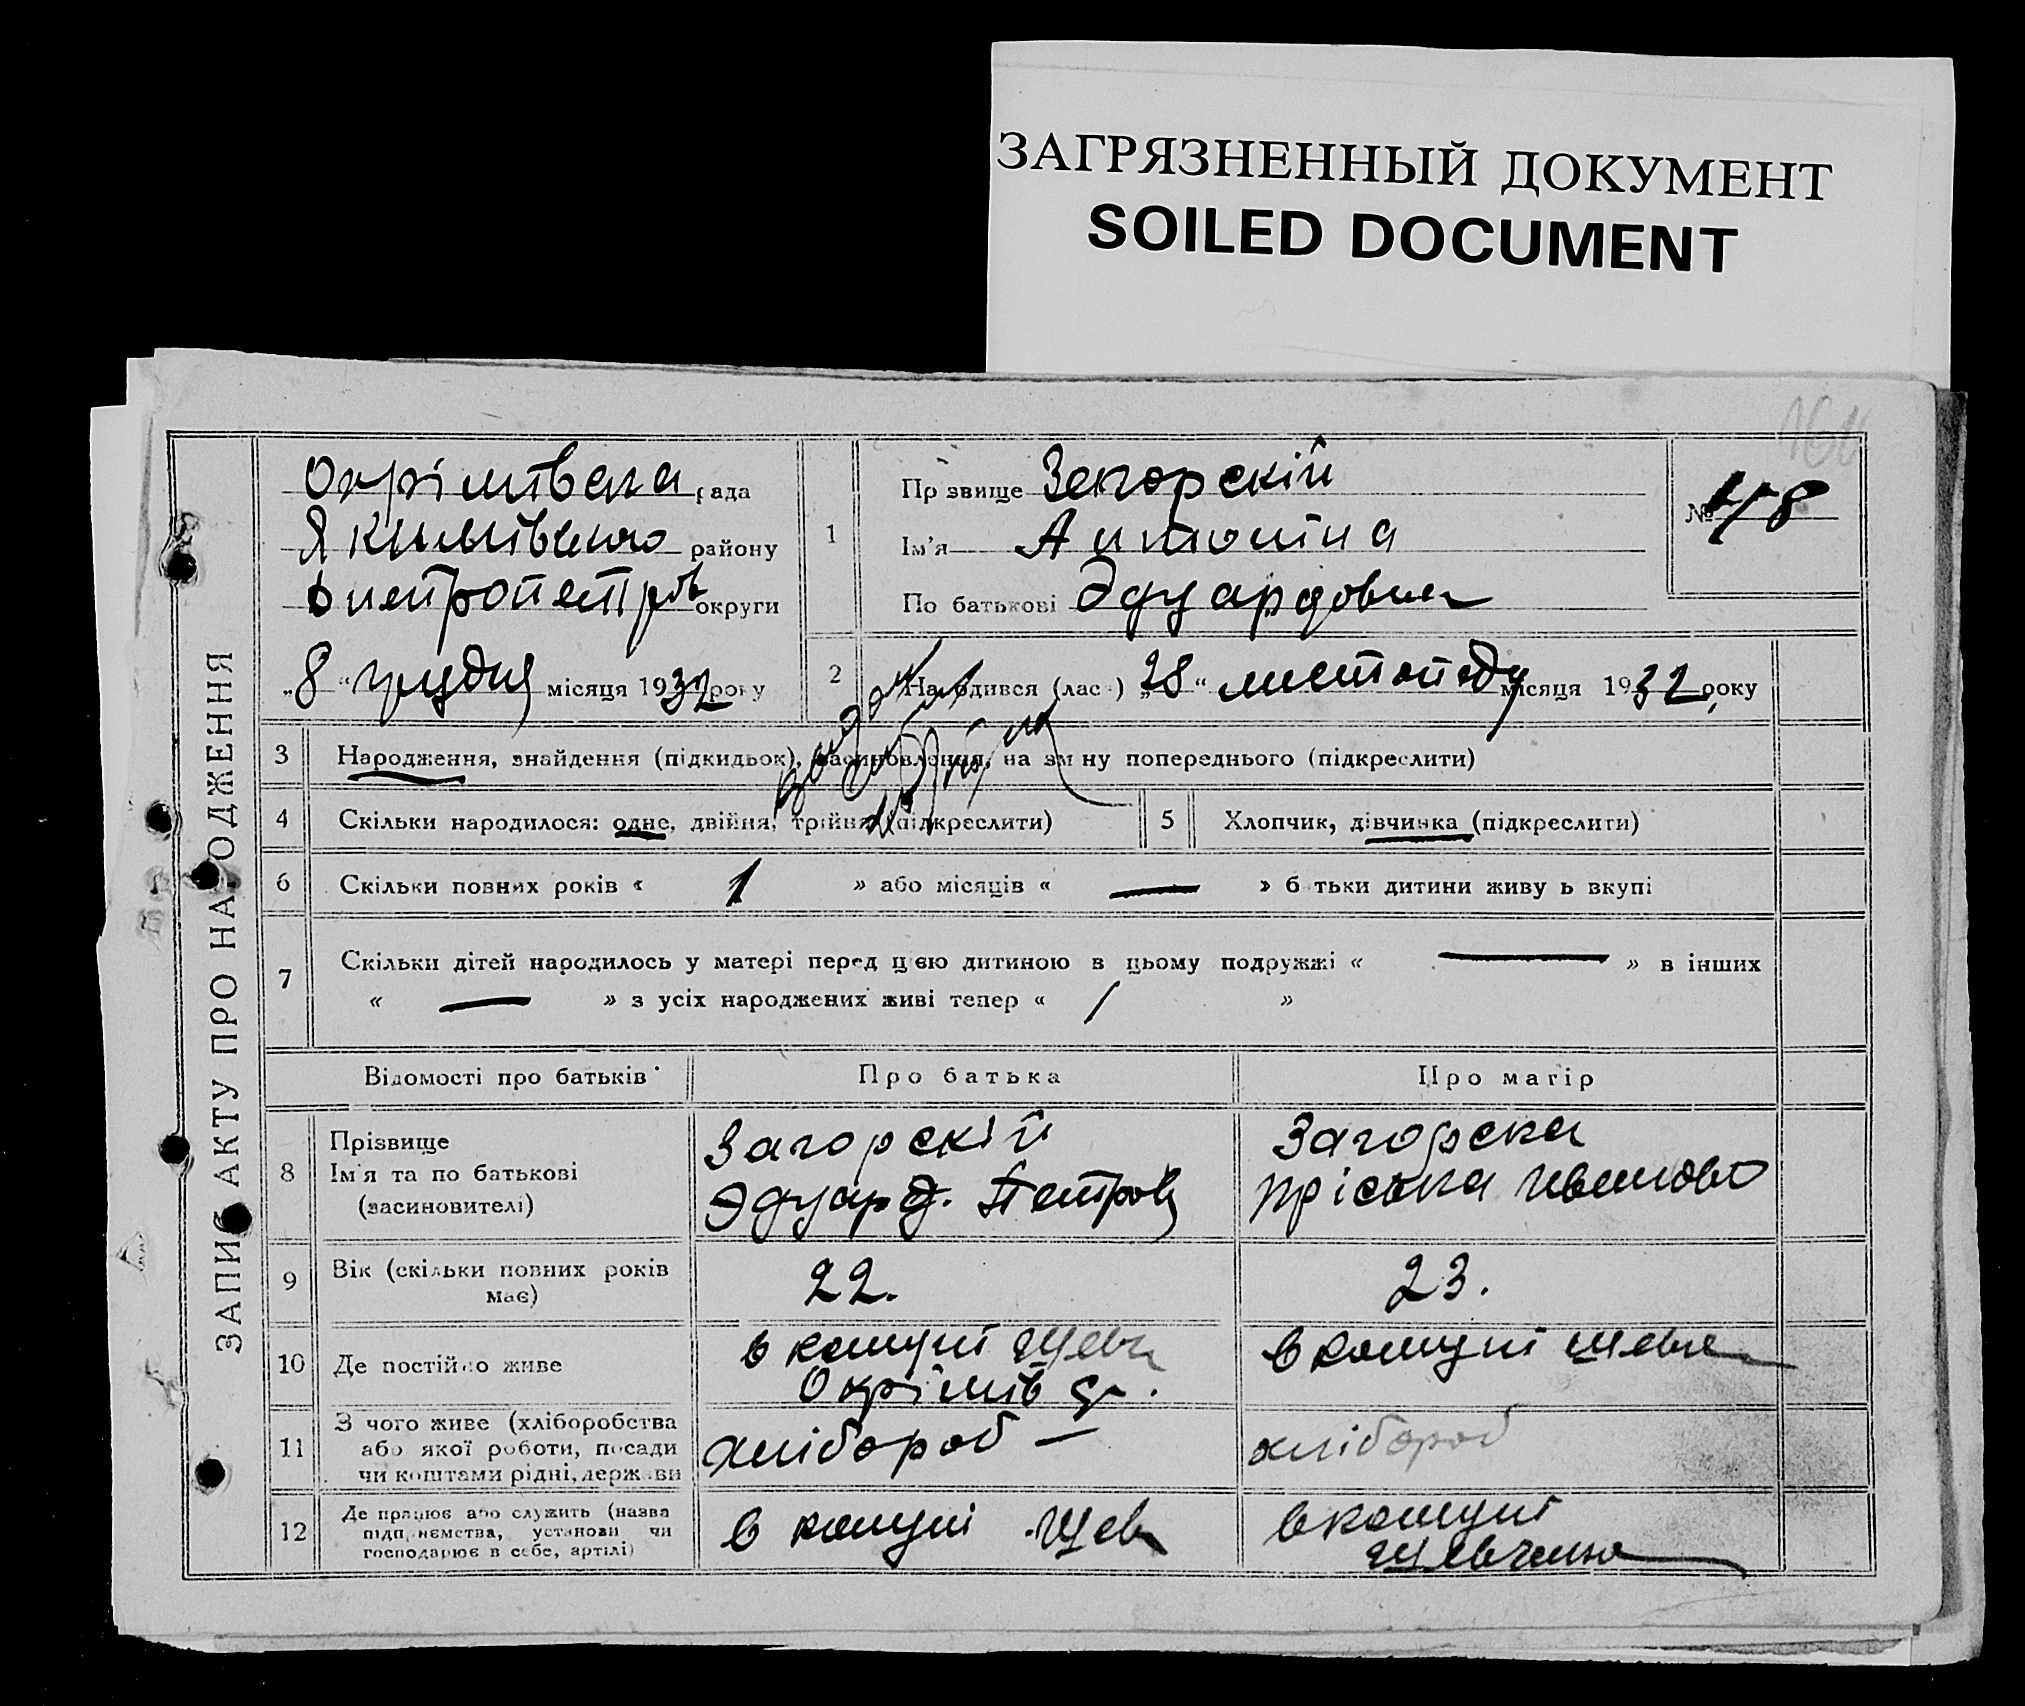 ЗАГРЯЗНЕННЫЙ ДОКУМЕНТ
SOILED DOCUMENT
ЗАПИС АКТУ ПРО НАРОДЖЕННЯ
Окрімівска рада
Якимівского району
Днепропетров округи
„8“ грудня місяця 1932 року
1
Прізвище Загорскій
Ім'я Антоніна
По батькові Эдуардовна
№ 48
2
Народився (лась) „28“ листопаду місяця 1932 року
3
Народження, знайдення (підкидьок), засиновлення, на зміну попереднього (підкреслити)
4
Скільки народилося: одне, двійня, трійня (підкреслити)
5
Хлопчик, дівчинка (підкреслити)
6
Скільки повних років « 1 » або місяців « — » батьки дитини живуть вкупі
7
Скільки дітей народилось у матері перед цією дитиною в цьому подружжі « — » в інших
« — » з усіх народжених живі тепер « / »
Відомості про батьків
Про батька
Про матір
8
Прізвище
Ім'я та по батькові
(засиновителі)
Загорскій
Эдуард. Петров
Загорска
Пріська Ивановно
9
Вік (скільки повних років
має)
22.
23.
10
Де постійно живе
в комуні Шевч
Окрімів
в комуні Шевче
11
З чого живе (хліборобства
або якої роботи, посади
чи коштами рідні, держави
хлібороб —
хлібороб
12
Де працює або служить (назва
підприємства, установи чи
господарює в себе, артілі)
в комуні Шев
в комуні
Шевченко